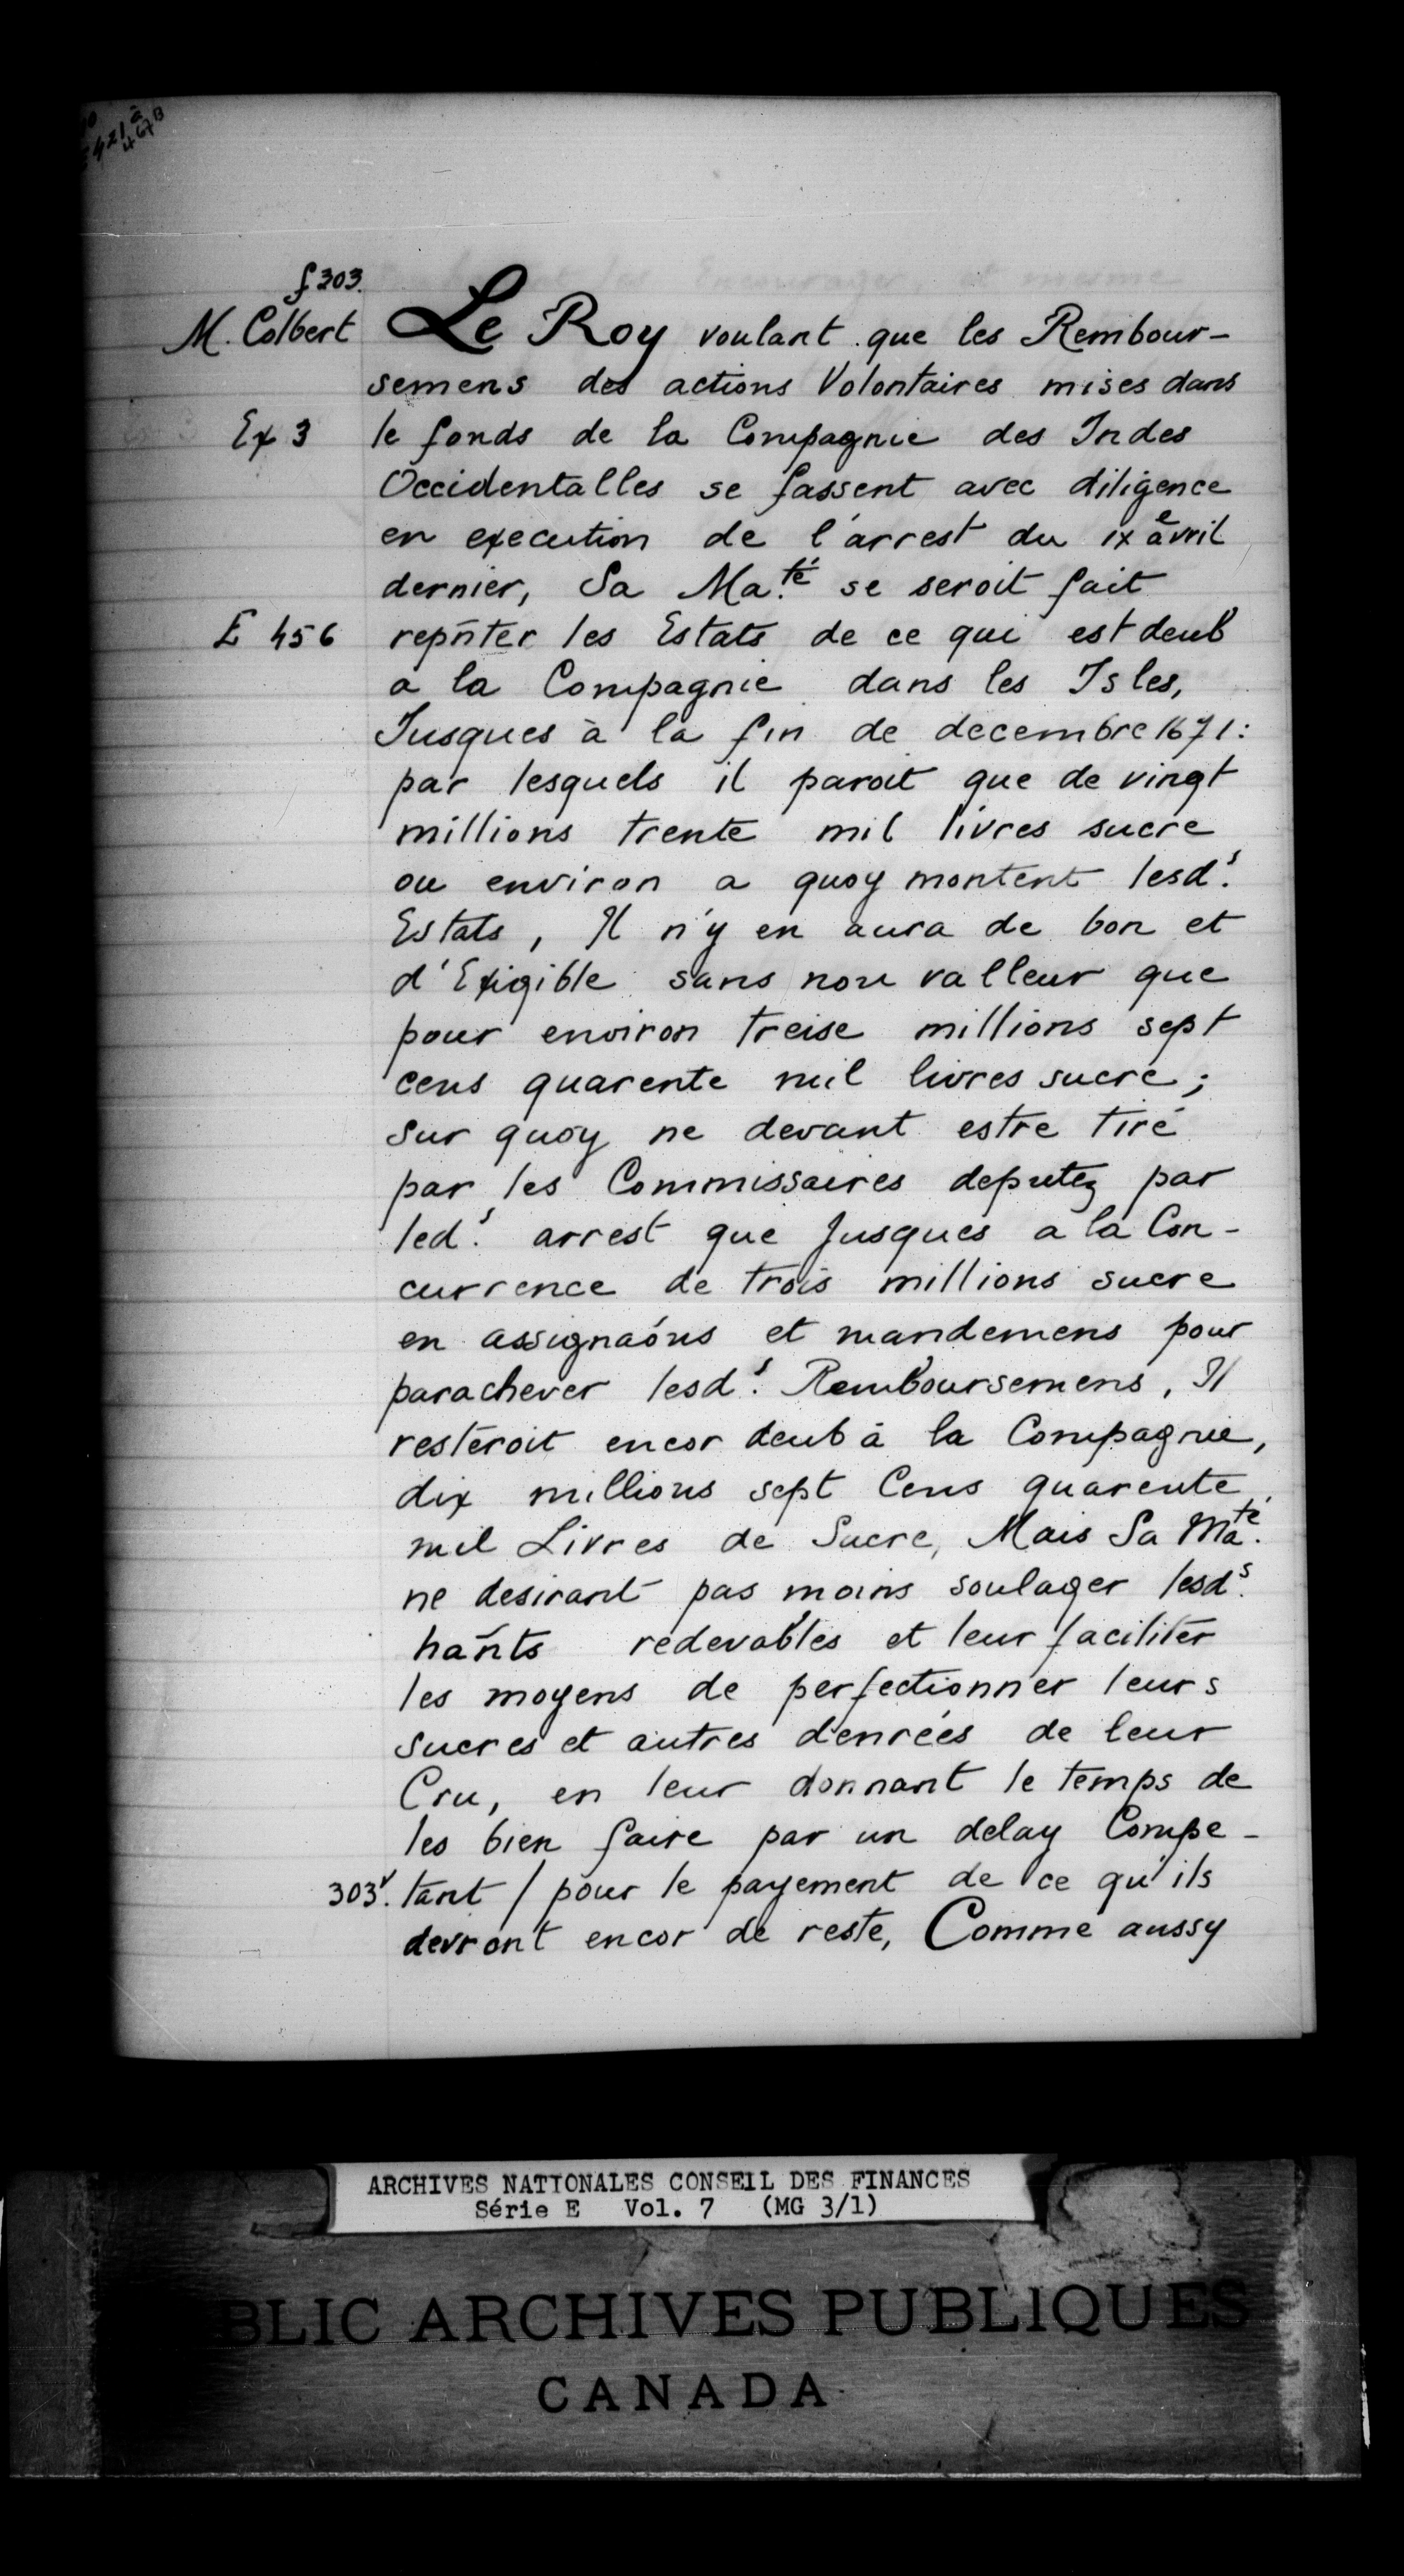 421 à
467B
f 303.
M. Colbert
Le Roy voulant que les Rembour-
semens des actions Volontaires mises dans
Ex 3
le fonds de la Compagnie des Indes
Occidentalles se fassent avec diligence
en execution de l'arrest du ixe avril
dernier, Sa Ma.té se seroit fait
E 456
repñter les Estats de ce qui est deub
a la Compagnie dans les Isles,
Jusques à la fin de decembre 1671:
par lesquels il paroit que de vingt
millions trente mil livres sucre
ou environ a quoy montent lesd.s
Estats, Il n'y en aura de bon et
d'Exigible sans non valleur que
pour environ treise millions sept
cens quarente mil livres sucre;
sur quoy ne devant estre tiré
par les Commissaires deputez par
led.s arrest que Jusques a la Con-
currence de trois millions sucre
en assignaóns et mandemens pour
parachever lesd.s Remboursemens, Il
resteroit encor deub à la Compagnie,
dix millions sept Cens quarente
mil Livres de Sucre, Mais Sa Ma.té
ne desirant pas moins soulager lesd.s
hañts redevables et leur faciliter
les moyens de perfectionner leurs
sucres et autres denrées de leur
Cru, en leur donnant le temps de
les bien faire par un delay Compe-
303v. tant / pour le payement de ce qu'ils
devront encor de reste, Comme aussy
ARCHIVES NATIONALES CONSEIL DES FINANCES
Série E Vol. 7 (MG 3/1)
BLIC ARCHIVES PUBLIQUES
CANADA